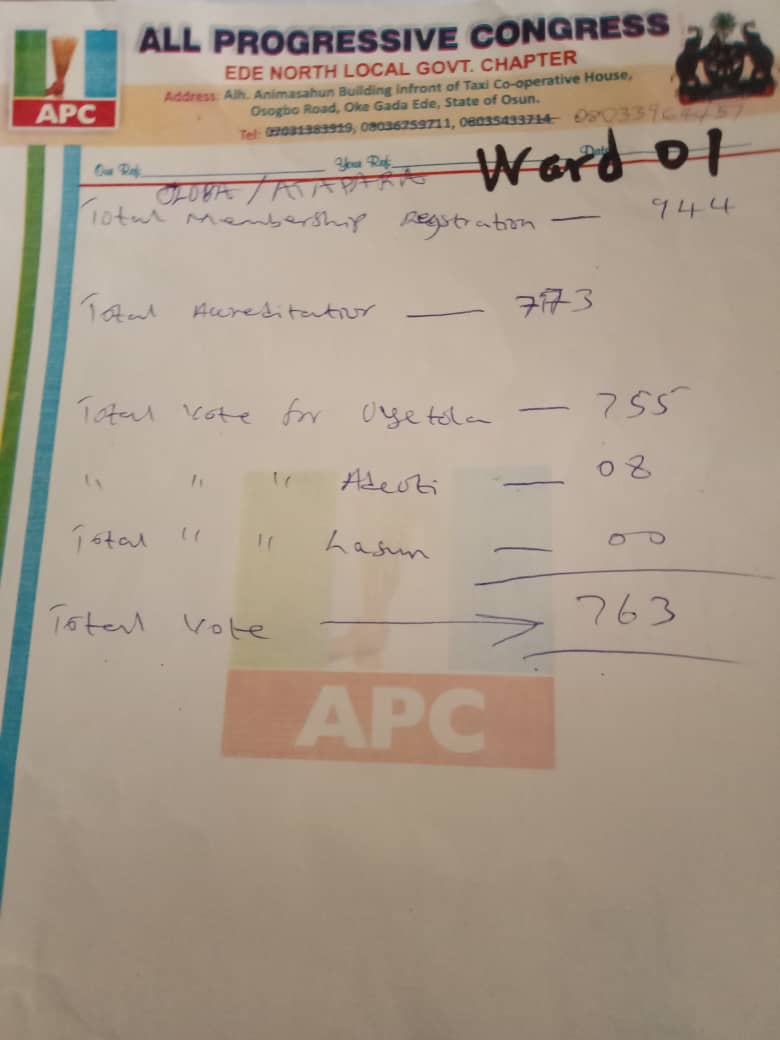 ALL PROGRESSIVE CONGRESS
EDE NORTH LOCAL GOVT. CHAPTER
Address: Alh. Animasahun Building infront of Taxi Co-operative House,
Osogbo Road, Oke Gada Ede, State of Osun.
Tel: 07031383919, 08036759711, 08035433714
APC
Our Ref: Your Ref: Date
Ward 01
OLOBA / ATAPARA
Total Membership Registration — 944
Total Accreditation — 773
Total Vote for Oyetola — 755
" " " Adeoti — 08
Total " " Lasun — 00
Total Vote → 763
APC